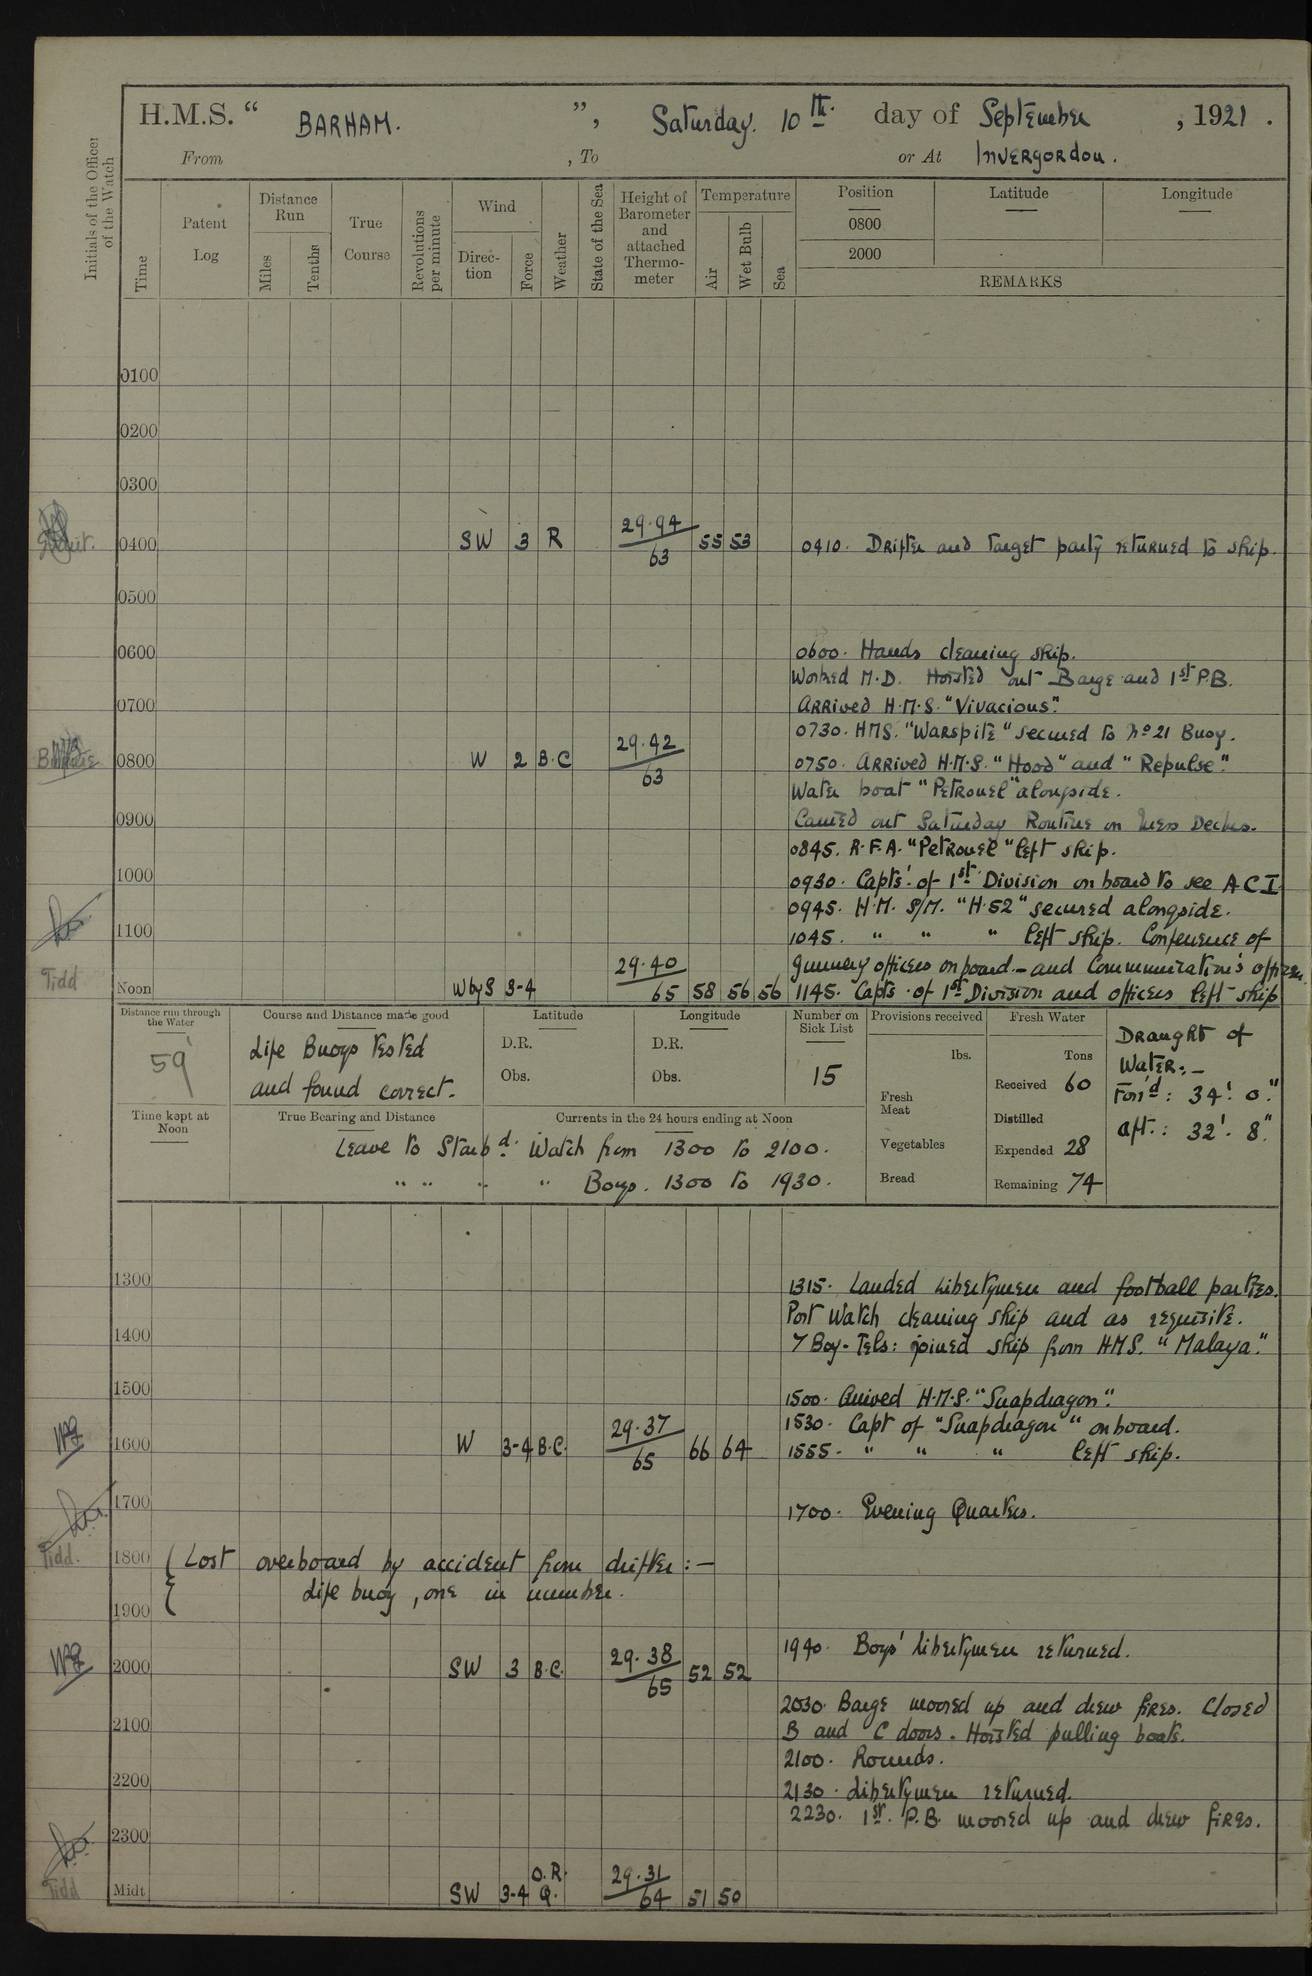 H.M.S. “ BARHAM. ”, Saturday. 10th. day of September , 1921 .
From , To or At Invergordon.
Initials of the Officer of the Watch
Time
Patent Log
Distance Run
Miles
Tenths
True Course
Revolutions per minute
Wind
Direc-tion
Force
Weather
State of the Sea
Height of Barometer and attached Thermo-meter
Temperature
Air
Wet Bulb
Sea
Position
Latitude
Longitude
0800
2000
REMARKS
0100
0200
0300
0400 SW 3 R 29.94/63 55 53 0410. Drifter and Target party returned to ship.
0500
0600 0600. Hands cleaning ship.
Worked M.D. Hoisted out Barge and 1st P.B.
0700 Arrived H.M.S. "Vivacious".
0730. HMS. "Warspite" secured to No 21 Buoy.
0800 W 2 B.C 29.42/63 0750. Arrived H.M.S. "Hood" and "Repulse".
Water boat "Petronel" alongside.
0900 Carried out Saturday Routine on Mess Decks.
0845. R.F.A. "Petronel" left ship.
1000 0930. Capts! of 1st Division on board to see A C I
0945. H.M. S/M. "H.52" secured alongside.
1100 1045. " " " left ship. Conference of
Gunnery officers on board. - and Communication's officers.
Tidd Noon W by S 3-4 29.40/65 58 56 56 1145. Capts. of 1st Division and officers left ship
Distance run through the Water
59'
Course and Distance made good
Life Buoys tested
and found correct.
Latitude
D.R.
Obs.
Longitude
D.R.
Obs.
Number on Sick List
15
Provisions received
lbs.
Fresh Meat
Vegetables
Bread
Fresh Water
Tons
Received 60
Distilled
Expended 28
Remaining 74
Draught of
Water:-
For'd: 34'. 0."
Aft.: 32'. 8".
Time kept at Noon
True Bearing and Distance
Currents in the 24 hours ending at Noon
Leave to Starbd. Watch from 1300 to 2100.
" " " " Boys. 1300 to 1930.
1300 1315. Landed Libertymen and football parties.
Port Watch cleaning ship and as requisite.
1400 7 Boy-Tels: joined ship from HMS. "Malaya."
1500 1500. Arrived H.M.S. "Snapdragon".
1530. Capt of "Snapdragon" on board.
1600 W 3-4 B.C. 29.37/65 66 64 1555. " " " left ship.
1700 1700. Evening Quarters.
Tidd. 1800 Lost overboard by accident from drifter :-
1900 Life buoy, one in number.
1940. Boys' Libertymen returned.
2000 SW 3 B.C. 29.38/65 52 52
2030. Barge moored up and drew fires. Closed
2100 B and C doors. Hoisted pulling boats.
2100. Rounds.
2200 2130. Libertymen returned.
2230. 1st. P.B. moored up and drew fires.
2300
Tidd Midt SW 3-4 O.R. Q. 29.31/64 51 50